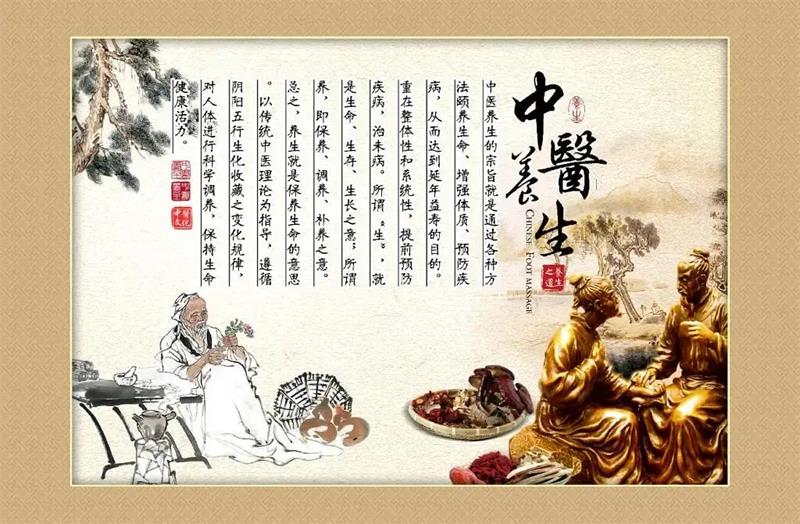 中醫
養生
CHINESE FOOT MASSAGE
養生
之道
中医养生的宗旨就是通过各种方
法颐养生命、增强体质、预防疾
病，从而达到延年益寿的目的。
重在整体性和系统性，提前预防
疾病，治未病。所谓“生”，就
是生命、生存、生长之意；所谓
养，即保养、调养、补养之意。
总之，养生就是保养生命的意思
。以传统中医理论为指导，遵循
阴阳五行生化收藏之变化规律，
对人体进行科学调养，保持生命
健康活力。
中醫
文化